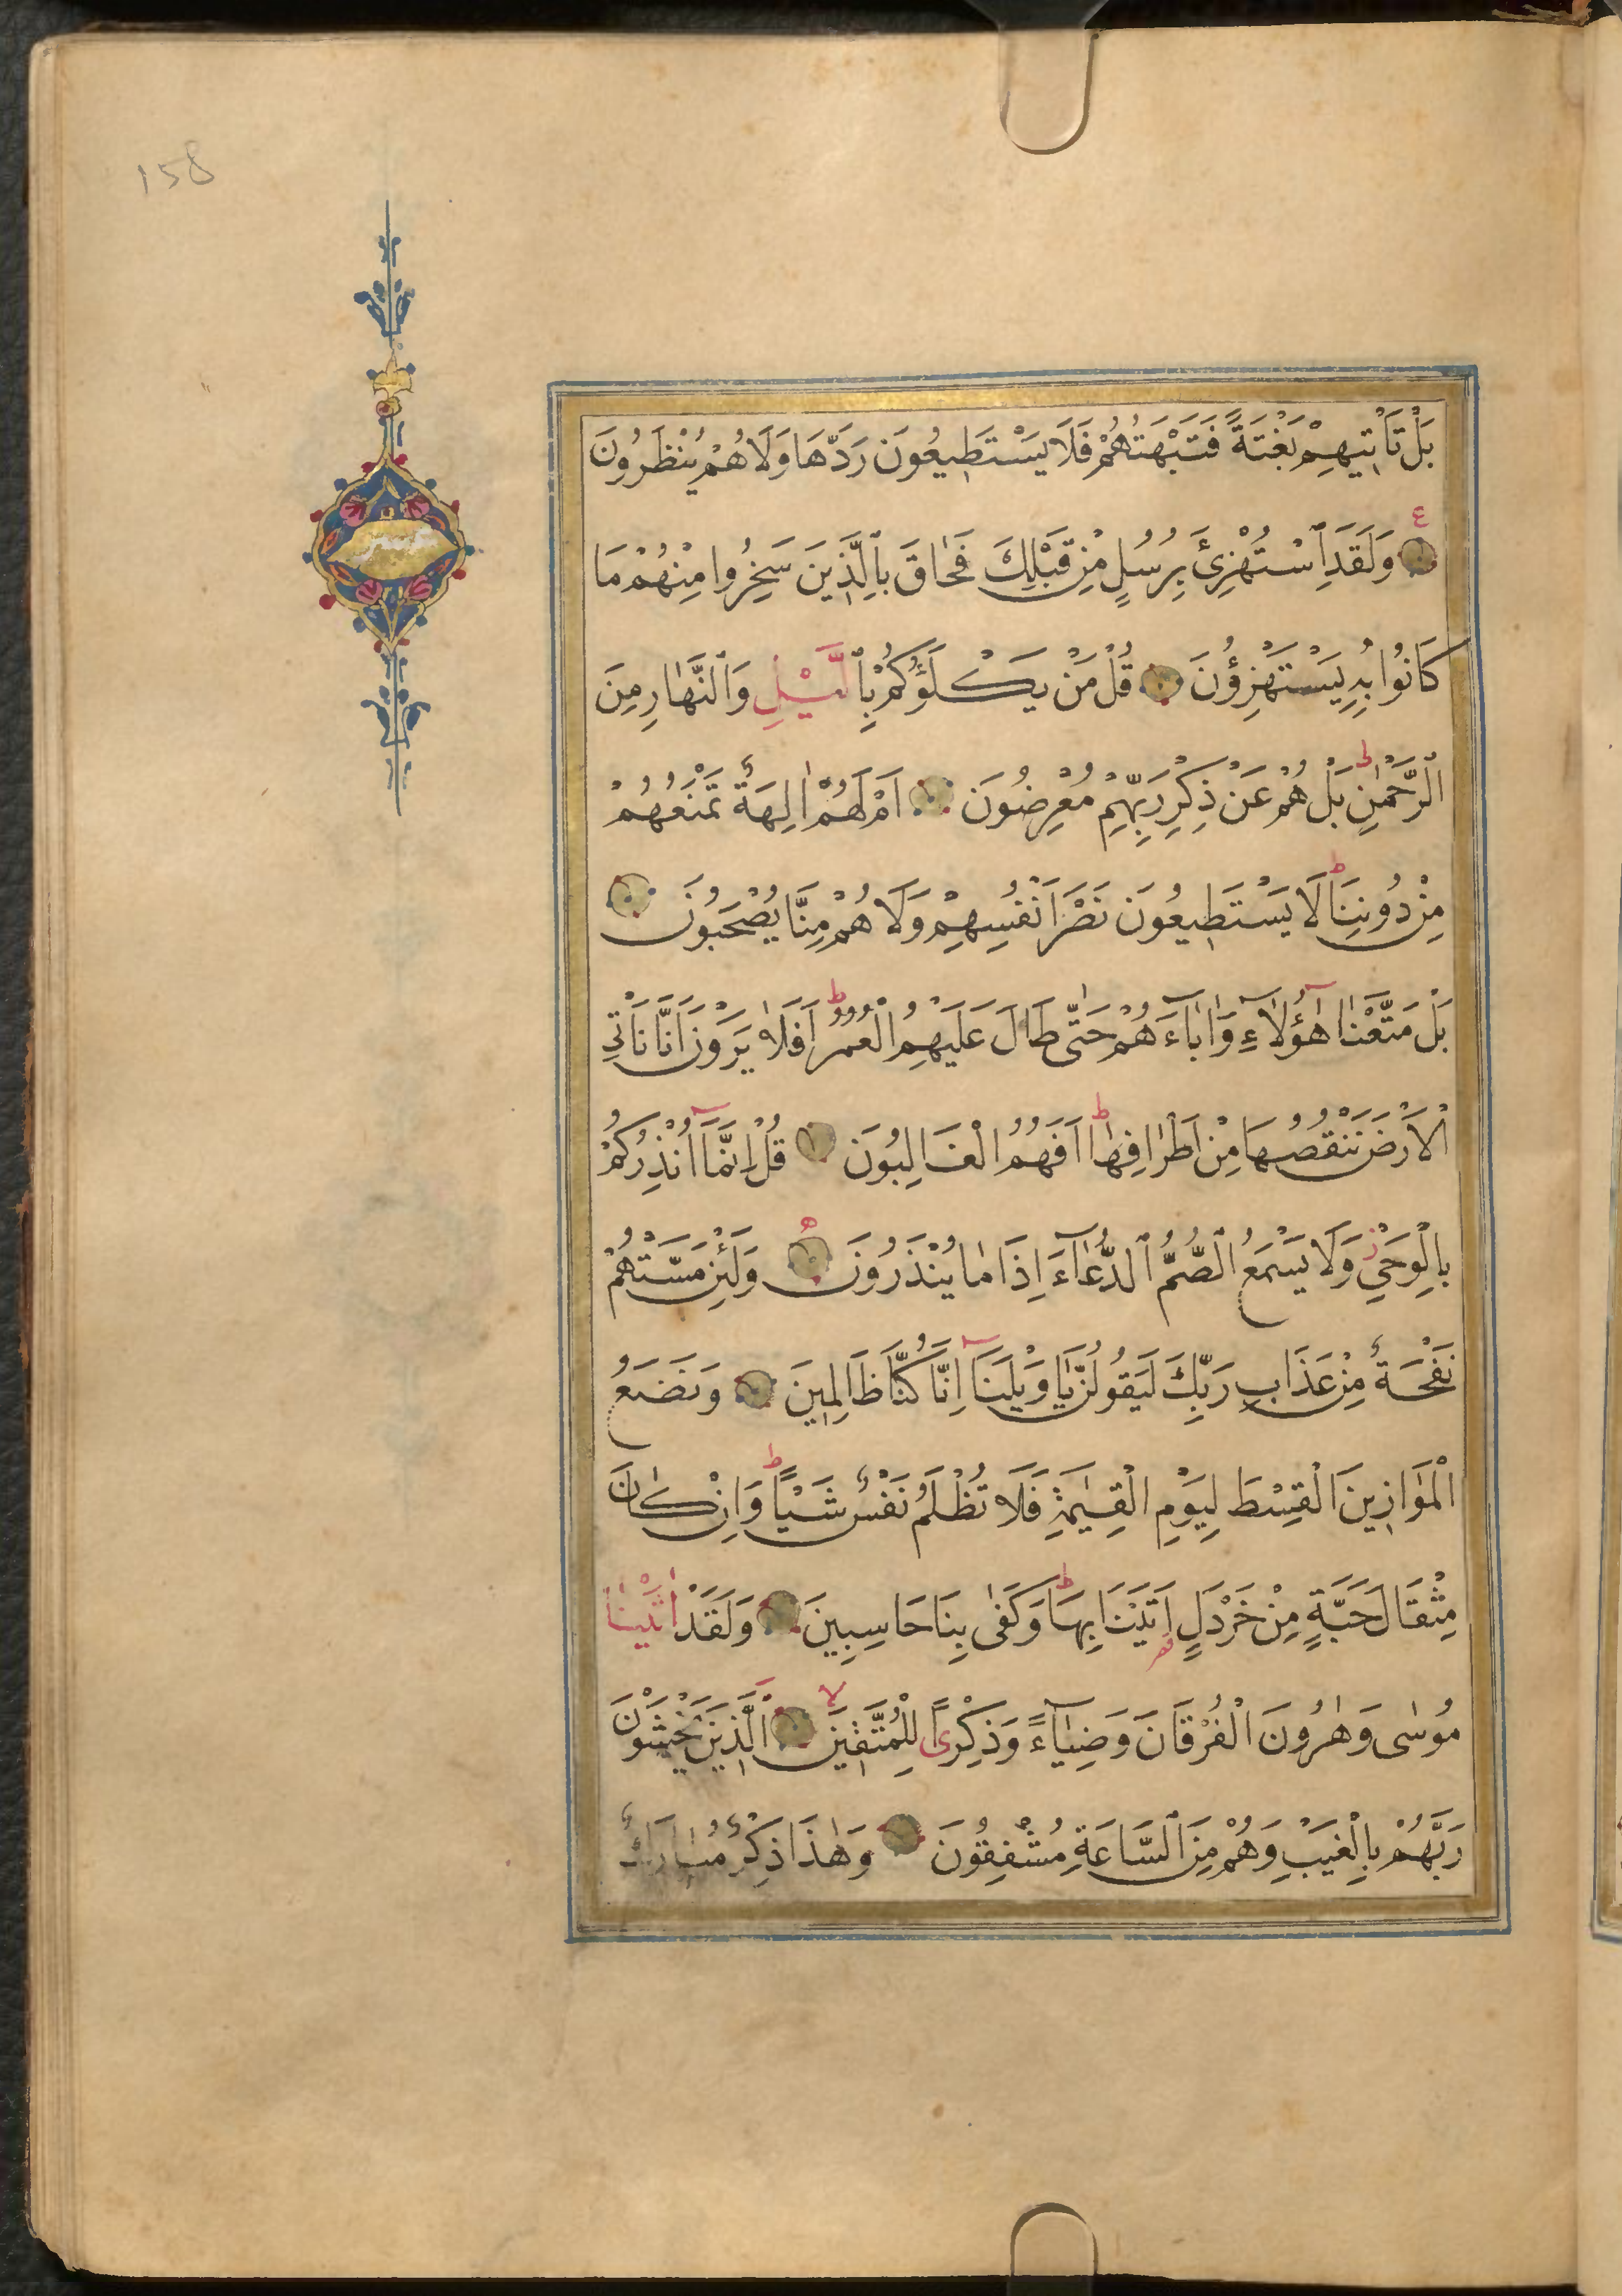 158
بَلْ تَأْتِيهِمْ بَغْتَةً فَتَبْهَتُهُمْ فَلَا يَسْتَطِيعُونَ رَدَّهَا وَلَا هُمْ يُنْظَرُونَ
ع
وَلَقَدِ ٱسْتُهْزِئَ بِرُسُلٍ مِنْ قَبْلِكَ فَحَاقَ بِٱلَّذِينَ سَخِرُوا مِنْهُمْ مَا
كَانُوا بِهِ يَسْتَهْزِؤُنَ قُلْ مَنْ يَكْلَؤُكُمْ بِٱلَّيْلِ وَٱلنَّهَارِ مِنَ
ٱلرَّحْمٰنِ ط بَلْ هُمْ عَنْ ذِكْرِ رَبِّهِمْ مُعْرِضُونَ اَمْ لَهُمْ اٰلِهَةٌ تَمْنَعُهُمْ
مِنْ دُونِنَا ط لَا يَسْتَطِيعُونَ نَصْرَ اَنْفُسِهِمْ وَلَا هُمْ مِنَّا يُصْحَبُونَ
بَلْ مَتَّعْنَا هٰٓؤُلَآءِ وَاٰبَآءَهُمْ حَتّٰى طَالَ عَلَيْهِمُ الْعُمُرُ ط اَفَلَا يَرَوْنَ اَنَّا نَأْتِي
الْاَرْضَ نَنْقُصُهَا مِنْ اَطْرَافِهَا ط اَفَهُمُ الْغَالِبُونَ قُلْ اِنَّمَٓا اُنْذِرُكُمْ
بِالْوَحْيِ ز وَلَا يَسْمَعُ ٱلصُّمُّ ٱلدُّعَآءَ اِذَا مَا يُنْذَرُونَ وَلَئِنْ مَسَّتْهُمْ
نَفْحَةٌ مِنْ عَذَابِ رَبِّكَ لَيَقُولُنَّ يَا وَيْلَنَٓا اِنَّا كُنَّا ظَالِمِينَ وَنَضَعُ
الْمَوَازِينَ الْقِسْطَ لِيَوْمِ الْقِيٰمَةِ فَلَا تُظْلَمُ نَفْسٌ شَيْئًا ط وَاِنْ كَانَ
مِثْقَالَ حَبَّةٍ مِنْ خَرْدَلٍ اَتَيْنَا بِهَا ط وَكَفٰى بِنَا حَاسِبِينَ وَلَقَدْ اٰتَيْنَا
مُوسٰى وَهٰرُونَ الْفُرْقَانَ وَضِيَآءً وَذِكْرًى لِلْمُتَّقِينَ لا ٱلَّذِينَ يَخْشَوْنَ
رَبَّهُمْ بِالْغَيْبِ وَهُمْ مِنَ ٱلسَّاعَةِ مُشْفِقُونَ وَهٰذَا ذِكْرٌ مُبَارَكٌ